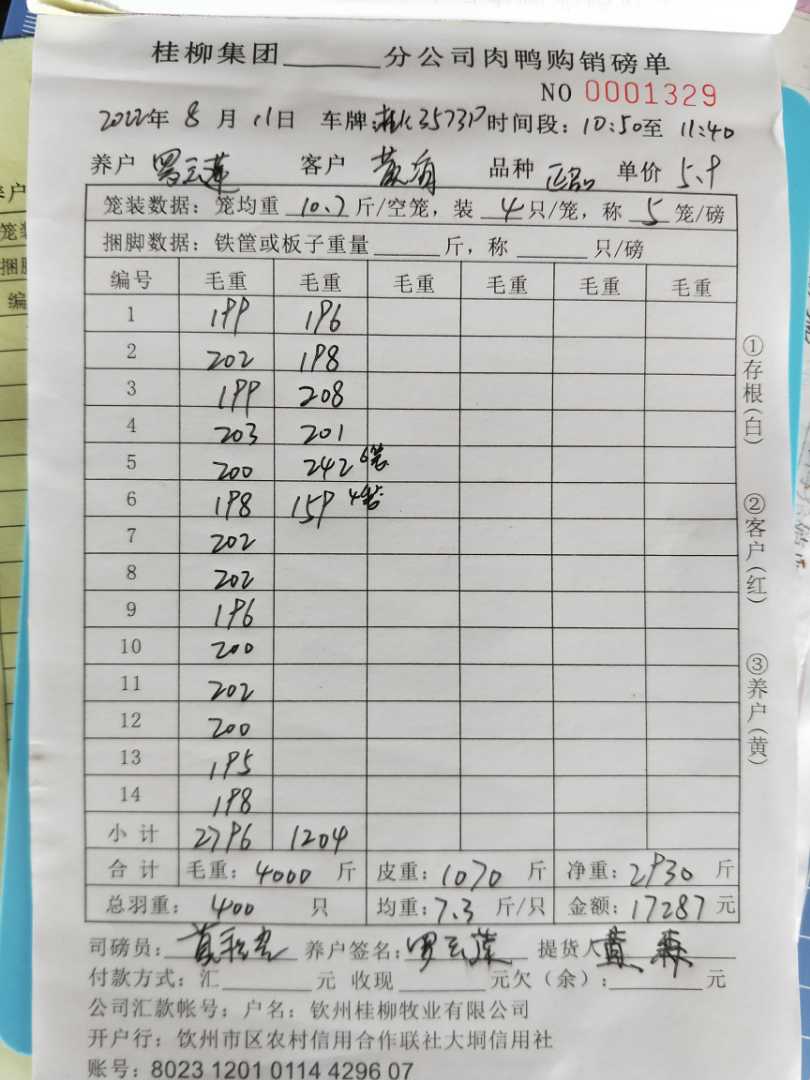 桂柳集团______分公司肉鸭购销磅单
NO 0001329
2022年 8 月 11日 车牌: 35737 时间段: 10:50至 11:40
养户 罗云莲 客户 黄 品种 正品 单价 5.9
笼装数据: 笼均重 10.7 斤/空笼, 装 4只/笼, 称 5 笼/磅
捆脚数据: 铁筐或板子重量______斤, 称______只/磅
编号 毛重 毛重 毛重 毛重 毛重 毛重
1 199 196
2 202 198
3 199 208
4 203 201
5 200 242 6笼
6 198 159 4笼
7 202
8 202
9 196
10 200
11 202
12 200
13 195
14 198
小计 2796 1204
合计 毛重: 4000 斤 皮重: 1070 斤 净重: 2930 斤
总羽重: 400 只 均重: 7.3 斤/只 金额: 17287 元
司磅员: 养户签名: 罗云莲 提货人 黄
付款方式: 汇______元 收现______元欠(余):______元
公司汇款帐号: 户名: 钦州桂柳牧业有限公司
开户行: 钦州市区农村信用合作联社大垌信用社
账号: 8023 1201 0114 4296 07
①存根(白)
②客户(红)
③养户(黄)